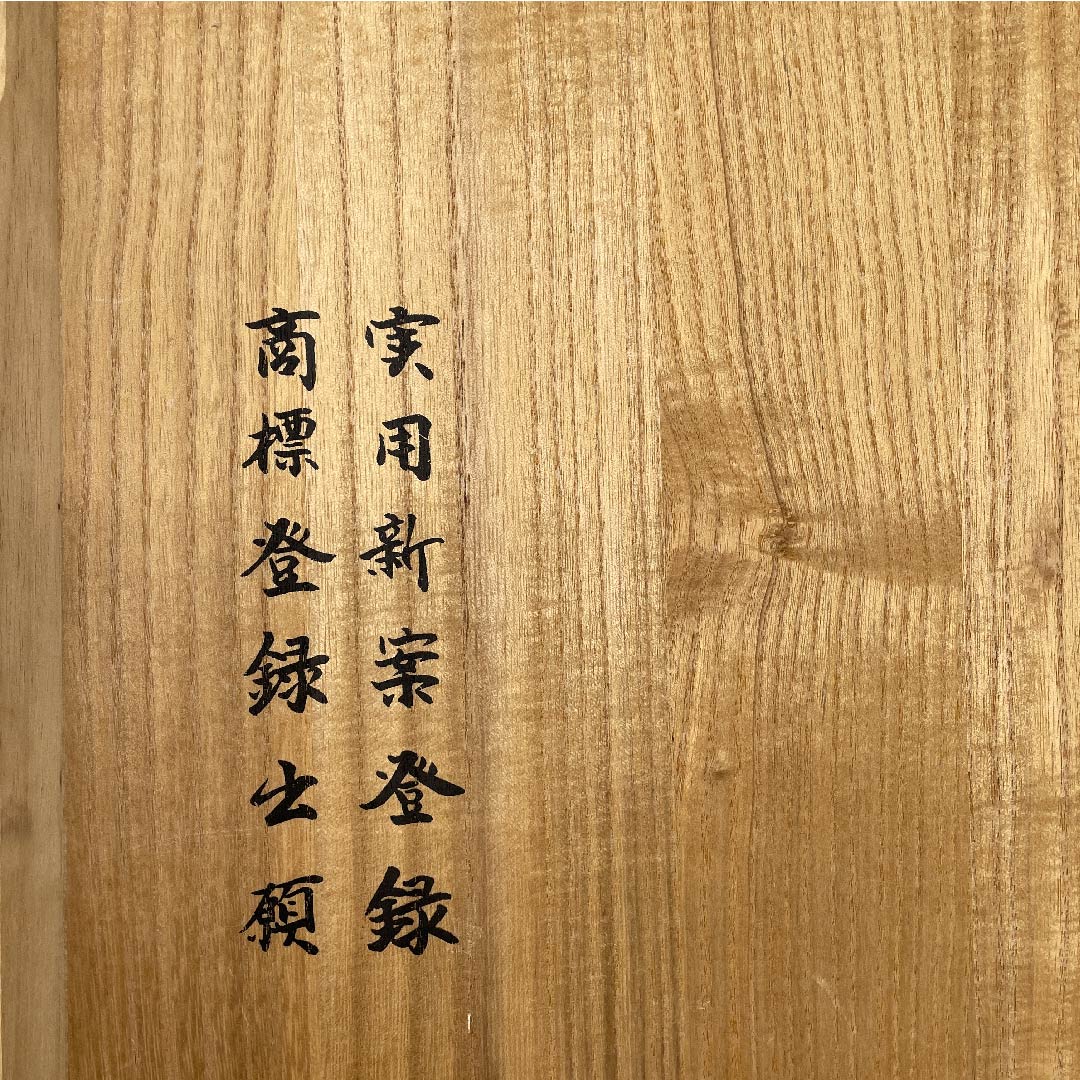 実用新案登録
商標登録出願